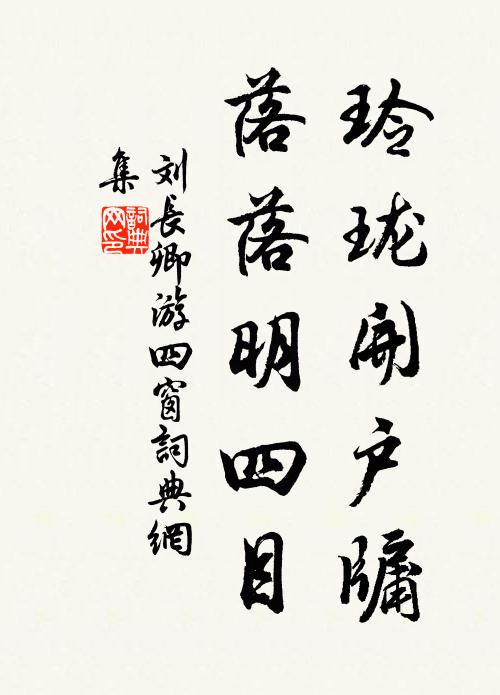 玲珑開户牖
落落明四目
刘長卿游四窗詞典網
集
詞典
网印